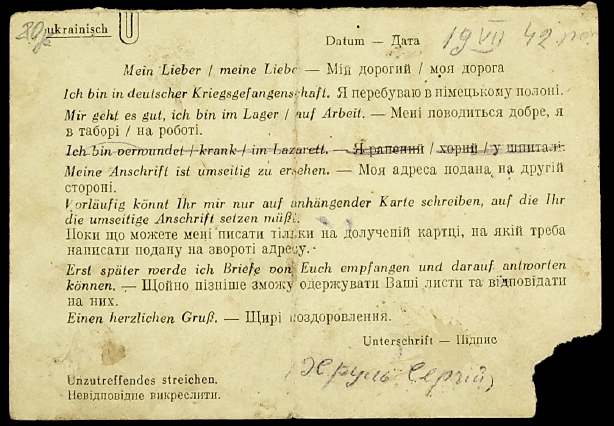 ukrainisch
Datum — Дата 19 VII 42
Mein Lieber / meine Liebe — Мій дорогий / моя дорога
Ich bin in deutscher Kriegsgefangenschaft. Я перебуваю в німецькому полоні.
Mir geht es gut, ich bin im Lager / auf Arbeit. — Мені поводиться добре, я
в таборі / на роботі.
Ich bin verwundet / krank / im Lazarett. — Я ранений / хорий / у шпиталі.
Meine Anschrift ist umseitig zu ersehen. — Моя адреса подана на другій
стороні.
Vorläufig könnt Ihr mir nur auf anhängender Karte schreiben, auf die Ihr
die umseitige Anschrift setzen müßt.
Поки що можете мені писати тільки на долученій картці, на якій треба
написати подану на звороті адресу.
Erst später werde ich Briefe von Euch empfangen und darauf antworten
können. — Щойно пізніше зможу одержувати Ваші листи та відповідати
на них.
Einen herzlichen Gruß. — Щирі поздоровлення.
Unterschrift — Підпис
Хруль Сергій
Unzutreffendes streichen.
Невідповідне викреслити.